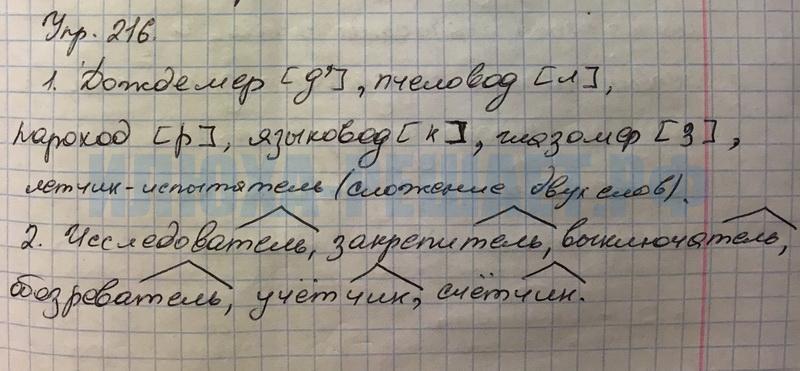 Упр. 216.
1. Дождемер [д'], пчеловод [л],
пароход [р], языковод [к], глазомер [з],
летчик-испытатель (сложение двух слов).
2. Исследователь, закрепитель, выключатель,
обозреватель, учётчик, счётчик.